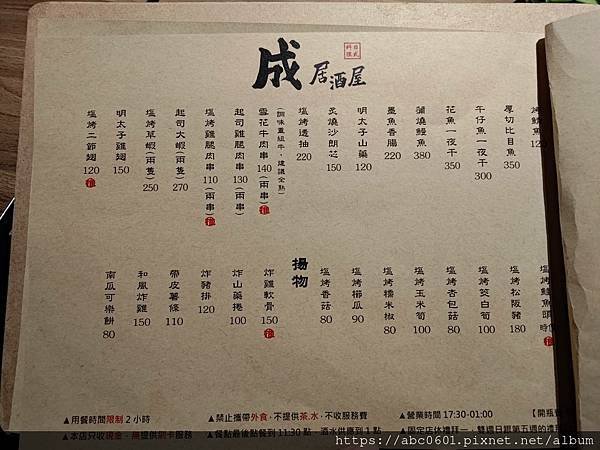 成
居酒屋
日式
料理
烤鯖魚 120
厚切比目魚 350
午仔魚一夜干 300
花魚一夜干 350
蒲燒鰻魚 380
墨魚香腸 220
明太子山藥 120
炙燒沙朗芯 150
塩烤透抽 220
(調味重組牛,建議全熟)
雪花牛肉串 140(兩串)推
起司雞腿肉串 130(兩串)
塩烤雞腿肉串 110(兩串)推
起司大蝦(兩隻) 270
塩烤草蝦(兩隻) 250
明太子雞翅 150
塩烤二節翅 120 推
塩烤鮭魚頭 時價
塩烤松阪豬 180
塩烤筊白筍 100
塩烤杏包菇 80
塩烤玉米筍 100
塩烤糯米椒 80
塩烤櫛瓜 90
塩烤香菇 80
揚物
炸雞軟骨 150 推
炸山藥捲 100
炸豬排 120
帶皮薯條 110
和風炸雞 150
南瓜可樂餅 80
▲用餐時間限制 2 小時
▲本店只收現金,無提供刷卡服務
▲禁止攜帶外食,不提供茶.水,不收服務費
▲餐點最後點餐到 11:30 點 酒水供應到 1 點
▲營業時間 17:30-01:00
▲固定店休禮拜一,雙週日跟第五週的禮拜
【開瓶
https://abc0601.pixnet.net/album